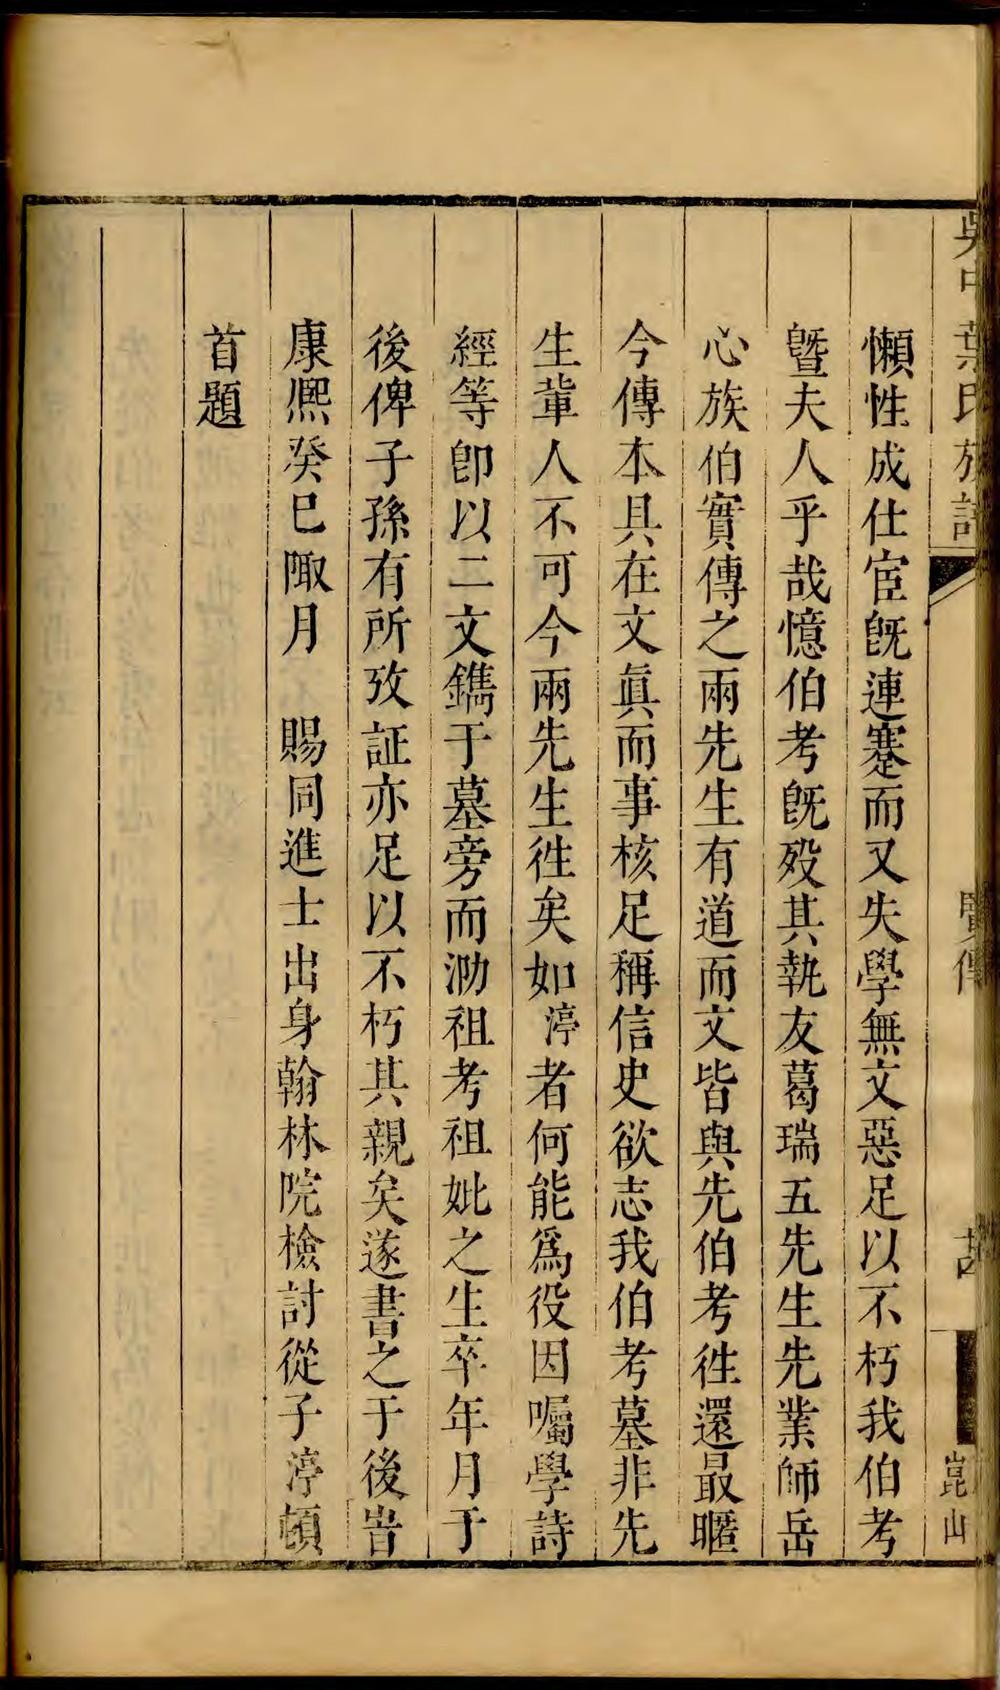 吳中葉氏族譜
賢傳
崑山
懶性成仕宦旣連蹇而又失學無文惡足以不朽我伯考
曁夫人乎哉憶伯考旣歿其執友葛瑞五先生先業師岳
心族伯實傳之兩先生有道而文皆與先伯考徃還最暱
今傳本具在文眞而事核足稱信史欲志我伯考墓非先
生軰人不可今兩先生徃矣如渟者何能爲役因囑學詩
經等卽以二文鐫于墓旁而泐祖考祖妣之生卒年月于
後俾子孫有所攷証亦足以不朽其親矣遂書之于後旹
康熈癸巳陬月 賜同進士出身翰林院檢討從子渟頓
首題